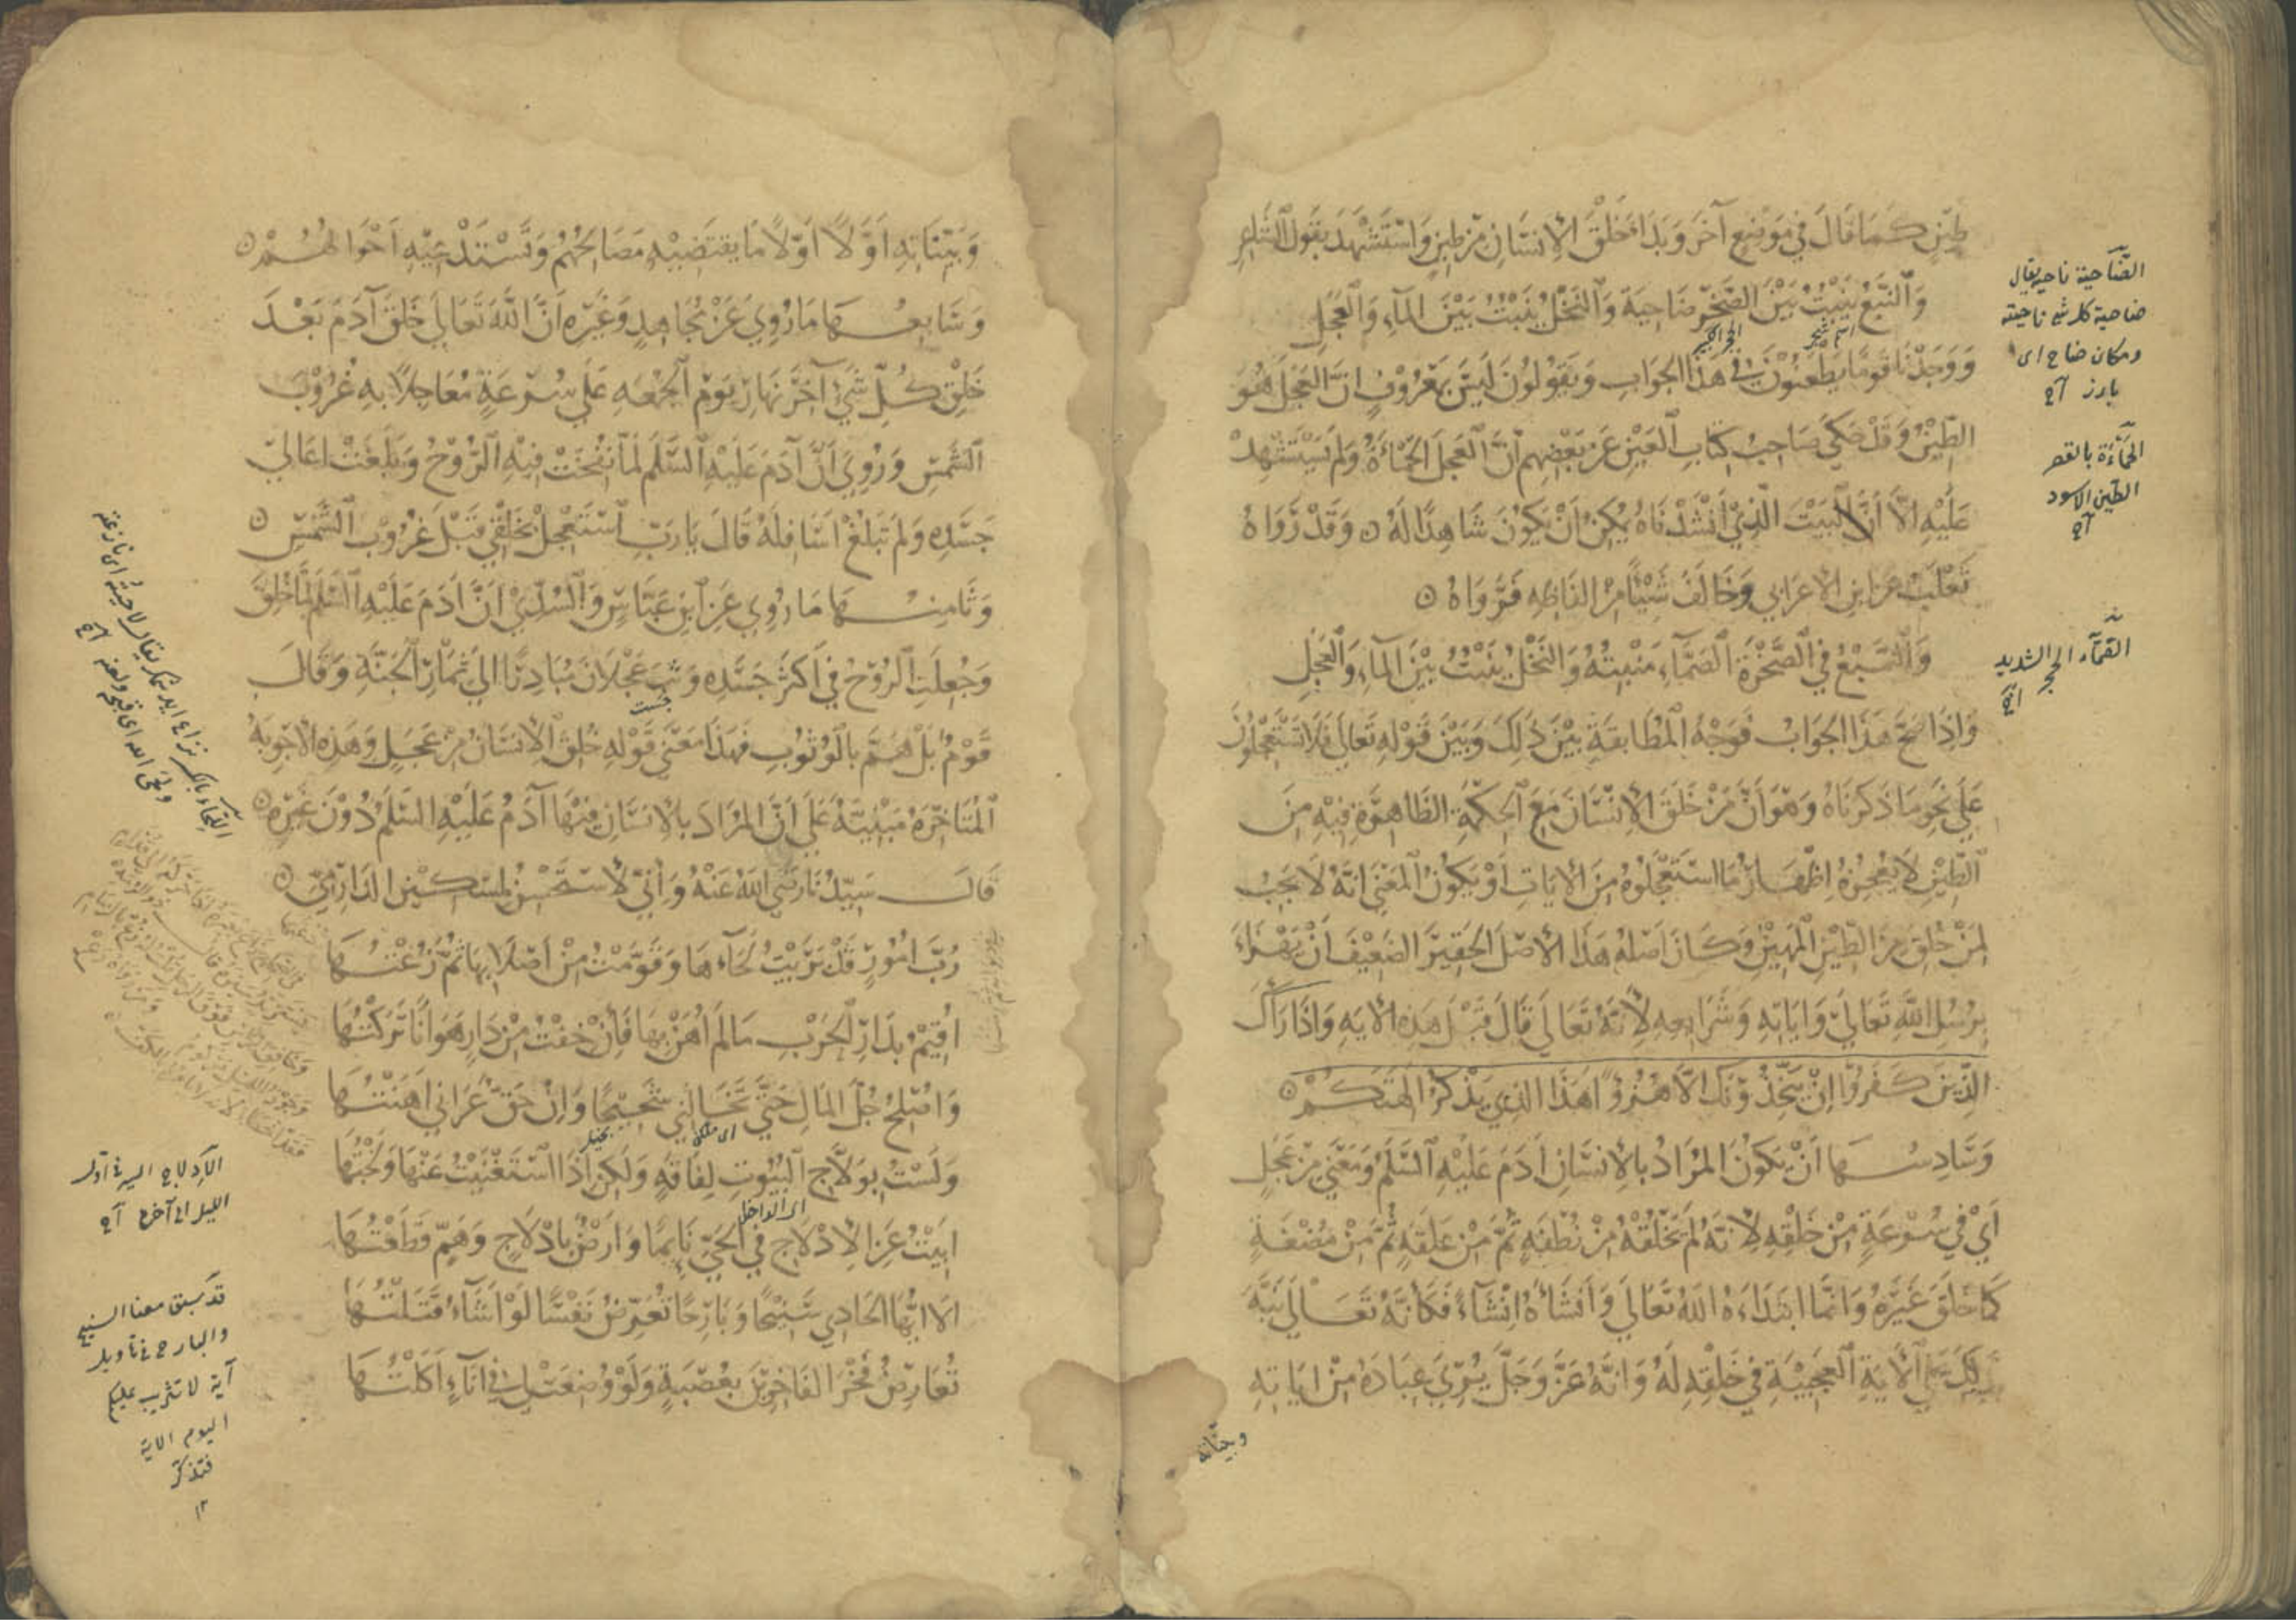 طِيْنٍ كَمَا قَالَ فِي مَوْضِعٍ آخَرَ وَبَدَأَ خَلْقَ الْإِنْسَانِ مِنْ طِينٍ وَاسْتَشْهَدَ بِقَوْلِ الشَّاعِرِ
وَالنَّبْعُ يَنْبُتُ بَيْنَ الصَّخْرِ ضَاحِيَةً وَالنَّخْلُ يَنْبُتُ بَيْنَ الْمَاءِ وَالْعَجَلِ
وَوَجَدْنَا قَوْمًا يَطْعَنُوْنَ فِي هَذَا الْجَوَابِ وَيَقُوْلُوْنَ لَيْسَ بِمَعْرُوْفٍ اَنَّ الْعَجَلَ هُوَ
الطِّيْنُ وَقَدْ حَكَى صَاحِبُ كِتَابِ الْعَيْنِ عَنْ بَعْضِهِمْ اَنَّ الْعَجَلَ الْحَمْأَةُ وَلَمْ يَسْتَشْهِدْ
عَلَيْهِ اِلَّا اَنَّ الْبَيْتَ الَّذِيْ اَنْشَدْنَاهُ يُمْكِنُ اَنْ يَكُوْنَ شَاهِدًا لَهُ وَقَدْ رَوَاهُ
ثَعْلَبٌ عَنِ ابْنِ الْاَعْرَابِي وَخَالَفَ شَيْئًا مِنْ اَلْفَاظِهِ فَرَوَاهُ
وَالنَّبْعُ فِي الصَّخْرَةِ الصَّمَّاءِ مَنْبِتُهُ وَالنَّخْلُ يَنْبُتُ بَيْنَ الْمَاءِ وَالْعَجَلِ
وَاِذَا صَحَّ هَذَا الْجَوَابُ فَوَجْهُ الْمُطَابَقَةِ بَيْنَ ذَلِكَ وَبَيْنَ قَوْلِهِ تَعَالَى فَلَا تَسْتَعْجِلُوْنَ
عَلَى نَحْوِ مَا ذَكَرْنَاهُ وَهُوَ اَنَّ مَنْ خَلَقَ الْاِنْسَانَ مَعَ الْحِكْمَةِ الظَّاهِرَةِ فِيْهِ مِنَ
الطِّيْنِ لَا يُعْجِزُهُ اِظْهَارُ مَا اسْتَعْجَلُوهُ مِنَ الْآيَاتِ اَوْ يَكُوْنُ الْمَعْنَى اَنَّهُ لَا يَجِبُ
لِمَنْ خُلِقَ مِنَ الطِّيْنِ الْمَهِيْنِ وَكَانَ اَصْلُهُ هَذَا الْاَصْلَ الْحَقِيْرَ الضَّعِيْفَ اَنْ يَهْزَاءَ
بِرُسُلِ اللهِ تَعَالَى وَاٰيَاتِهِ وَشَرَائِعِهِ لِاَنَّهُ تَعَالَى قَالَ قَبْلَ هَذِهِ الْآيَةِ وَاِذَا رَآكَ
الَّذِيْنَ كَفَرُوْا اِنْ يَتَّخِذُوْنَكَ اِلَّا هُزُوًا اَهَذَا الَّذِي يَذْكُرُ اٰلِهَتَكُمْ
وَسَادِسُهَا اَنْ يَكُوْنَ الْمُرَادُ بِالْاِنْسَانِ اٰدَمَ عَلَيْهِ السَّلَمُ وَمَعْنَى مِنْ عَجَلٍ
اَيْ فِي سُرْعَةٍ مِنْ خَلْقِهِ لِاَنَّهُ لَمْ يَخْلُقْهُ مِنْ نُطْفَةٍ ثُمَّ مِنْ عَلَقَةٍ ثُمَّ مِنْ مُضْغَةٍ
كَمَا خَلَقَ غَيْرَهُ وَاِنَّمَا ابْتَدَاءَهُ اللهُ تَعَالَى وَاَنْشَاَهُ اِنْشَاءً فَكَاَنَّهُ تَعَالَى نَبَّهَ
بِذَلِكَ عَلَى الْآيَةِ الْعَجِيْبَةِ فِي خَلْقِهِ لَهُ وَاَنَّهُ عَزَّ وَجَلَّ يُرِيَ عِبَادَهُ مِنْ اٰيَاتِهِ
وبيّناته
الضّاحية ناحيه يقال
ضاحية كل شئ ناحيته
ومكان ضاح اى
بارز
الحمأة بالقصر
الطين الاسود
الصّمّاء الحجر الشديد
اسم شجر
الحجر الكبير
وَبَيِّنَاتِهِ اَوَّلًا اَوَّلًا مَا يَقْتَضِيْهِ مَصَالِحُهُمْ وَتَسْتَدْعِيْهِ اَحْوَالُهُمْ
وَسَابِعُهَا مَا رُوِيَ عَنْ مُجَاهِدٍ وَغَيْرِهِ اَنَّ اللهَ تَعَالَى خَلَقَ آدَمَ بَعْدَ
خَلْقِ كُلِّ شَيْءٍ آخِرَ نَهَارِ يَوْمِ الْجُمْعَةِ عَلَى سُرْعَةٍ مُعَاجِلًا بِهِ غُرُوْبَ
الشَّمْسِ وَرُوِيَ اَنَّ آدَمَ عَلَيْهِ السَّلَمُ لَمَّا نُفِخَتْ فِيْهِ الرُّوْحُ وَبَلَغَتْ اَعَالِيَ
جَسَدِهِ وَلَمْ تَبْلُغْ اَسَافِلَهُ قَالَ يَا رَبِّ اسْتَعْجِلْ بِخَلْقِي قَبْلَ غُرُوْبِ الشَّمْسِ
وَثَامِنُهَا مَا رُوِيَ عَنِ ابْنِ عَبَّاسٍ وَالسُّدِّيِّ اَنَّ اٰدَمَ عَلَيْهِ السَّلَمُ لَمَّا خُلِقَ
وَجُعِلَتِ الرُّوْحُ فِي اَكْثَرِ جَسَدِهِ وَثَبَ عَجْلَانَ مُبَادِرًا اِلَى ثِمَارِ الْجَنَّةِ وَقَالَ
قَوْمٌ بَلْ هَمَّ بِالْوُثُوْبِ فَهَذَا مَعْنَى قَوْلِهِ خُلِقَ الْاِنْسَانُ مِنْ عَجَلٍ وَهَذِهِ الْاَجْوِبَةُ
الْمُتَاَخِّرَةُ مَبْنِيَّةٌ عَلَى اَنَّ الْمُرَادَ بِالْاِنْسَانِ فِيْهَا آدَمُ عَلَيْهِ السَّلَمُ دُوْنَ غَيْرِهِ
قَالَ سَيِّدُنَا رَضِيَ اللهُ عَنْهُ وَاِنِّي لَاَسْتَحْسِنُ لِمِسْكِيْنٍ الدَّارِمِيِّ
رُبَّ اُمُوْرٍ قَدْ بَرَيْتُ لِحَاءَهَا وَقَوَّمْتُ مِنْ اَصْلَابِهَا ثُمَّ زُعْتُهَا
اُقِيْمُ بِدَارِ الْحَرْبِ مَا لَمْ اُهَنْ بِهَا فَاِنْ خِفْتُ مِنْ دَارٍ هَوَانًا تَرَكْتُهَا
وَاُصْلِحُ جُلَّ الْمَالِ حَتَّى تَخَالَنِي شَحِيْحًا وَاِنْ حَقٌّ عَرَانِي اَهَنْتُهَا
وَلَسْتُ بِوَلَّاجِ الْبُيُوْتِ لِفَاقَةٍ وَلَكِنْ اِذَا اسْتَغْنَيْتُ عَنْهَا وَلَجْتُهَا
اَبِيْتُ عَنِ الْاِدْلَاجِ فِي الْحَيِّ نَائِمًا وَاَرْضٌ بِاِدْلَاجٍ وَهَمٍّ قَطَعْتُهَا
اَلَا اَيُّهَا الْحَادِي سَنِيْحًا وَبَارِحًا تُعَرِّضُ نَفْسًا لَوْ اَشَاءُ قَتَلْتُهَا
تُعَارِضُ فَخْرَ الْفَاخِرِيْنَ بِعُصْبَةٍ وَلَوْ وُضِعَتْ لِي فِي اِنَاءٍ اَكَلْتُهَا
جست
بخيل
اى الداخل
الإدلاج السير فى اول
الليل او آخره
قد سبق معنا السنيح
والبارح فى تاويل
آية لا تثريب عليكم
اليوم الاية
فتذكر
١٢